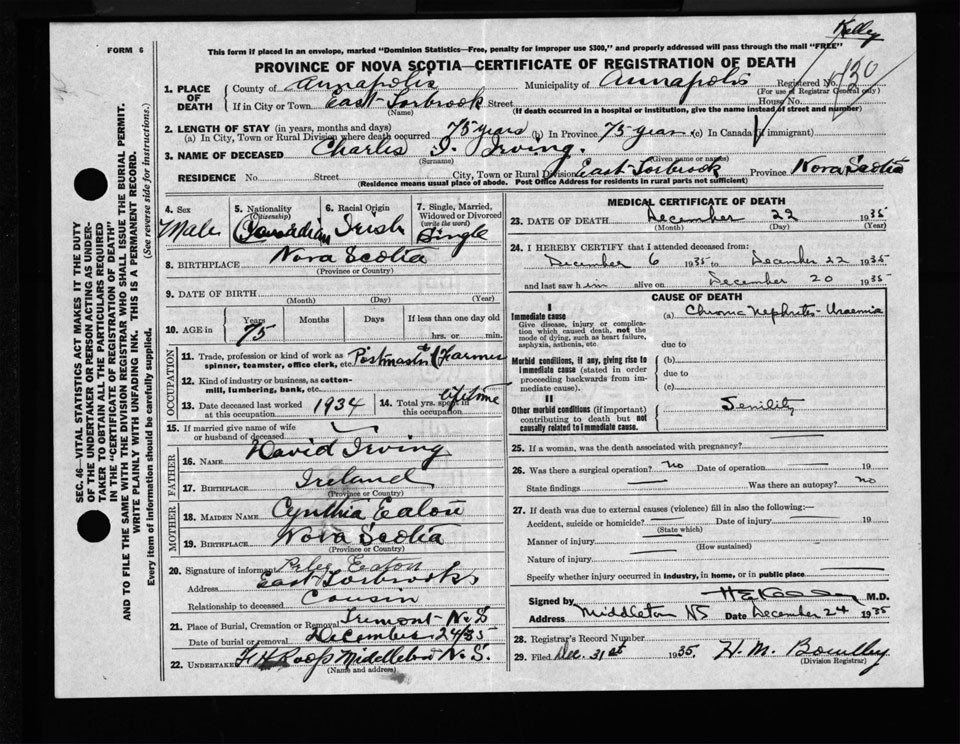 Kelley
FORM 6
This form if placed in an envelope, marked "Dominion Statistics—Free, penalty for improper use $300," and properly addressed will pass through the mail "FREE"
PROVINCE OF NOVA SCOTIA—CERTIFICATE OF REGISTRATION OF DEATH
1. PLACE OF DEATH County of Annapolis Municipality of Annapolis Registered No. 130
(For use of Registrar General only)
If in City or Town East Torbrook Street House No.
(Name) (If death occurred in a hospital or institution, give the name instead of street and number)
2. LENGTH OF STAY (in years, months and days)
(a) In City, Town or Rural Division where death occurred 75 years (b) In Province 75 years (c) In Canada (if immigrant)
3. NAME OF DECEASED Charles I. Irving.
(Surname) (Given name or names)
RESIDENCE No. Street City, Town or Rural Division East Torbrook Province Nova Scotia
(Residence means usual place of abode. Post Office Address for residents in rural parts not sufficient)
4. Sex Male
5. Nationality (Citizenship) Canadian
6. Racial Origin Irish
7. Single, Married, Widowed or Divorced (write the word) Single
8. BIRTHPLACE Nova Scotia
(Province or Country)
9. DATE OF BIRTH
(Month) (Day) (Year)
10. AGE in Years 75 Months Days If less than one day old
hrs. or min.
OCCUPATION
11. Trade, profession or kind of work as spinner, teamster, office clerk, etc. Postmaster & Farmer
12. Kind of industry or business, as cotton-mill, lumbering, bank, etc.
13. Date deceased last worked at this occupation 1934
14. Total yrs. spent in this occupation lifetime
15. If married give name of wife or husband of deceased
FATHER
16. Name David Irving
17. Birthplace Ireland
(Province or Country)
MOTHER
18. Maiden Name Cynthia Eaton
19. Birthplace Nova Scotia
(Province or Country)
20. Signature of informant Eaton
Address East Torbrook
Relationship to deceased Cousin
21. Place of Burial, Cremation or Removal Tremont N.S
Date of burial or removal December 24/35
22. Undertaker F H Roop Middleton N.S.
(Name and address)
MEDICAL CERTIFICATE OF DEATH
23. DATE OF DEATH December 22 1935
(Month) (Day) (Year)
24. I HEREBY CERTIFY that I attended deceased from:
December 6 1935 to December 22 1935
and last saw him alive on December 20 1935
CAUSE OF DEATH
I
Immediate cause
Give disease, injury or complication which caused death, not the mode of dying, such as heart failure, asphyxia, asthenia, etc.
(a) Chronic Nephritis - Uraemia
due to
Morbid conditions, if any, giving rise to immediate cause (stated in order proceeding backwards from immediate cause).
(b)
due to
(c)
II
Other morbid conditions (if important) contributing to death but not causally related to immediate cause.
Senility
25. If a woman, was the death associated with pregnancy?
26. Was there a surgical operation? No Date of operation 19
State findings Was there an autopsy? no
27. If death was due to external causes (violence) fill in also the following:—
Accident, suicide or homicide? Date of injury 19
(State which)
Manner of injury
(How sustained)
Nature of injury
Specify whether injury occurred in industry, in home, or in public place
Signed by M.D.
Address Middleton NS Date December 24 1935
28. Registrar's Record Number
29. Filed Dec. 31st 1935. H. M.
(Division Registrar)
SEC. 46—VITAL STATISTICS ACT MAKES IT THE DUTY
OF THE UNDERTAKER OR PERSON ACTING AS UNDER-
TAKER TO OBTAIN ALL THE PARTICULARS REQUIRED
IN THE "CERTIFICATE OF REGISTRATION OF DEATH"
AND TO FILE THE SAME WITH THE DIVISION REGISTRAR WHO SHALL ISSUE THE BURIAL PERMIT.
WRITE PLAINLY WITH UNFADING INK. THIS IS A PERMANENT RECORD.
Every item of information should be carefully supplied. (See reverse side for instructions.)